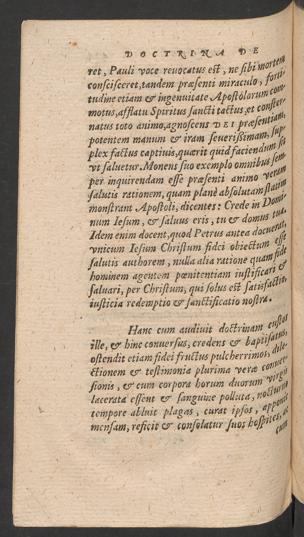 DOCTRINA DE
ret, Pauli voce reuocatus est, ne sibi mortem
conscisceret, tandem præsenti miraculo, forti-
tudine etiam & ingenuitate Apostolorum com-
motus, afflatu Spiritus sancti tactus, et conster-
natus toto animo, agnoscens DEI præsentiam,
potentem manum & iram seuerissimam, sup-
plex factus captiuis, quærit quid faciendum sit
vt saluetur. Monens suo exemplo omnibus sem-
per inquirendam esse præsenti animo veram
salutis rationem, quam planè absolutam statim
monstrant Apostoli, dicentes: Crede in Domi-
num Iesum, & saluus eris, tu & domus tua.
Idem enim docent, quod Petrus antea docuerat,
vnicum Iesum Christum fidei obiectum esse
salutis authorem, nulla alia ratione quam fide
hominem agentem pœnitentiam iustificari &
saluari, per Christum, qui solus est satisfactio,
iusticia redemptio & sanctificatio nostra.
Hanc cum audiuit doctrinam custos
ille, & hinc conuersus, credens & baptisatus,
ostendit etiam fidei fructus pulcherrimos, dile-
ctionem & testimonia plurima veræ conuer-
sionis, & cum corpora horum duorum virgis
lacerata essent & sanguine polluta, nocturno
tempore abluit plagas, curat ipsos, apponit
mensam, reficit & consolatur suos hospites, ac
cum